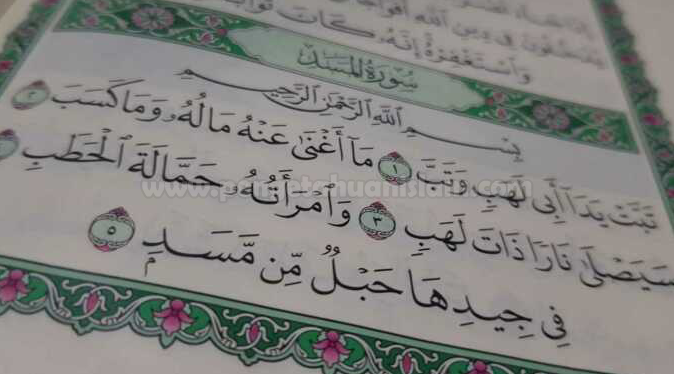 وَٱسْتَغْفِرْهُ إِنَّهُۥ كَانَ
سُورَةُ المَسَدِ
بِسْمِ ٱللَّهِ ٱلرَّحْمَٰنِ ٱلرَّحِيمِ
تَبَّتْ يَدَآ أَبِى لَهَبٍ وَتَبَّ ١ مَآ أَغْنَىٰ عَنْهُ مَالُهُۥ وَمَا كَسَبَ ٢
سَيَصْلَىٰ نَارًا ذَاتَ لَهَبٍ ٣ وَٱمْرَأَتُهُۥ حَمَّالَةَ ٱلْحَطَبِ
فِى جِيدِهَا حَبْلٌ مِّن مَّسَدٍۭ ٥